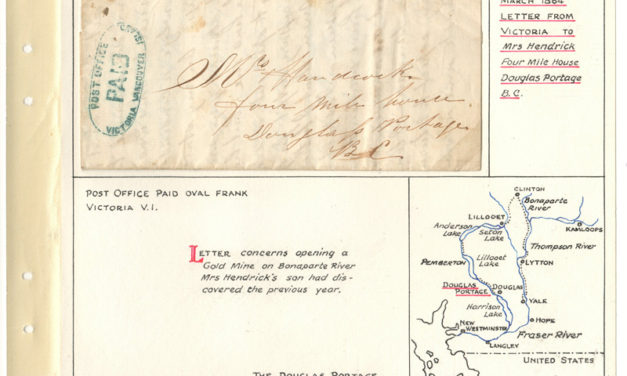 MARCH 1864
LETTER FROM
VICTORIA TO
MRS HENDRICK
FOUR MILE HOUSE
DOUGLAS PORTAGE
B.C.
POST OFFICE
PAID
VICTORIA VANCOUVER
Mrs Handcock
four mile house
Douglass Portage
BC
POST OFFICE PAID OVAL FRANK
VICTORIA V.I.
LETTER concerns opening a
Gold Mine on Bonaparte River
Mrs Hendrick's son had dis-
covered the previous year.
THE DOUGLAS PORTAGE
CLINTON
Bonaparte
River
LILLOOET
Anderson
Lake
Seton
Lake
KAMLOOPS
Thompson River
Lillooet
Lake
PEMBERTON
LYTTON
DOUGLAS
PORTAGE
DOUGLAS
Harrison
Lake
YALE
NEW
WESTMINSTER
HOPE
Fraser River
LANGLEY
UNITED STATES